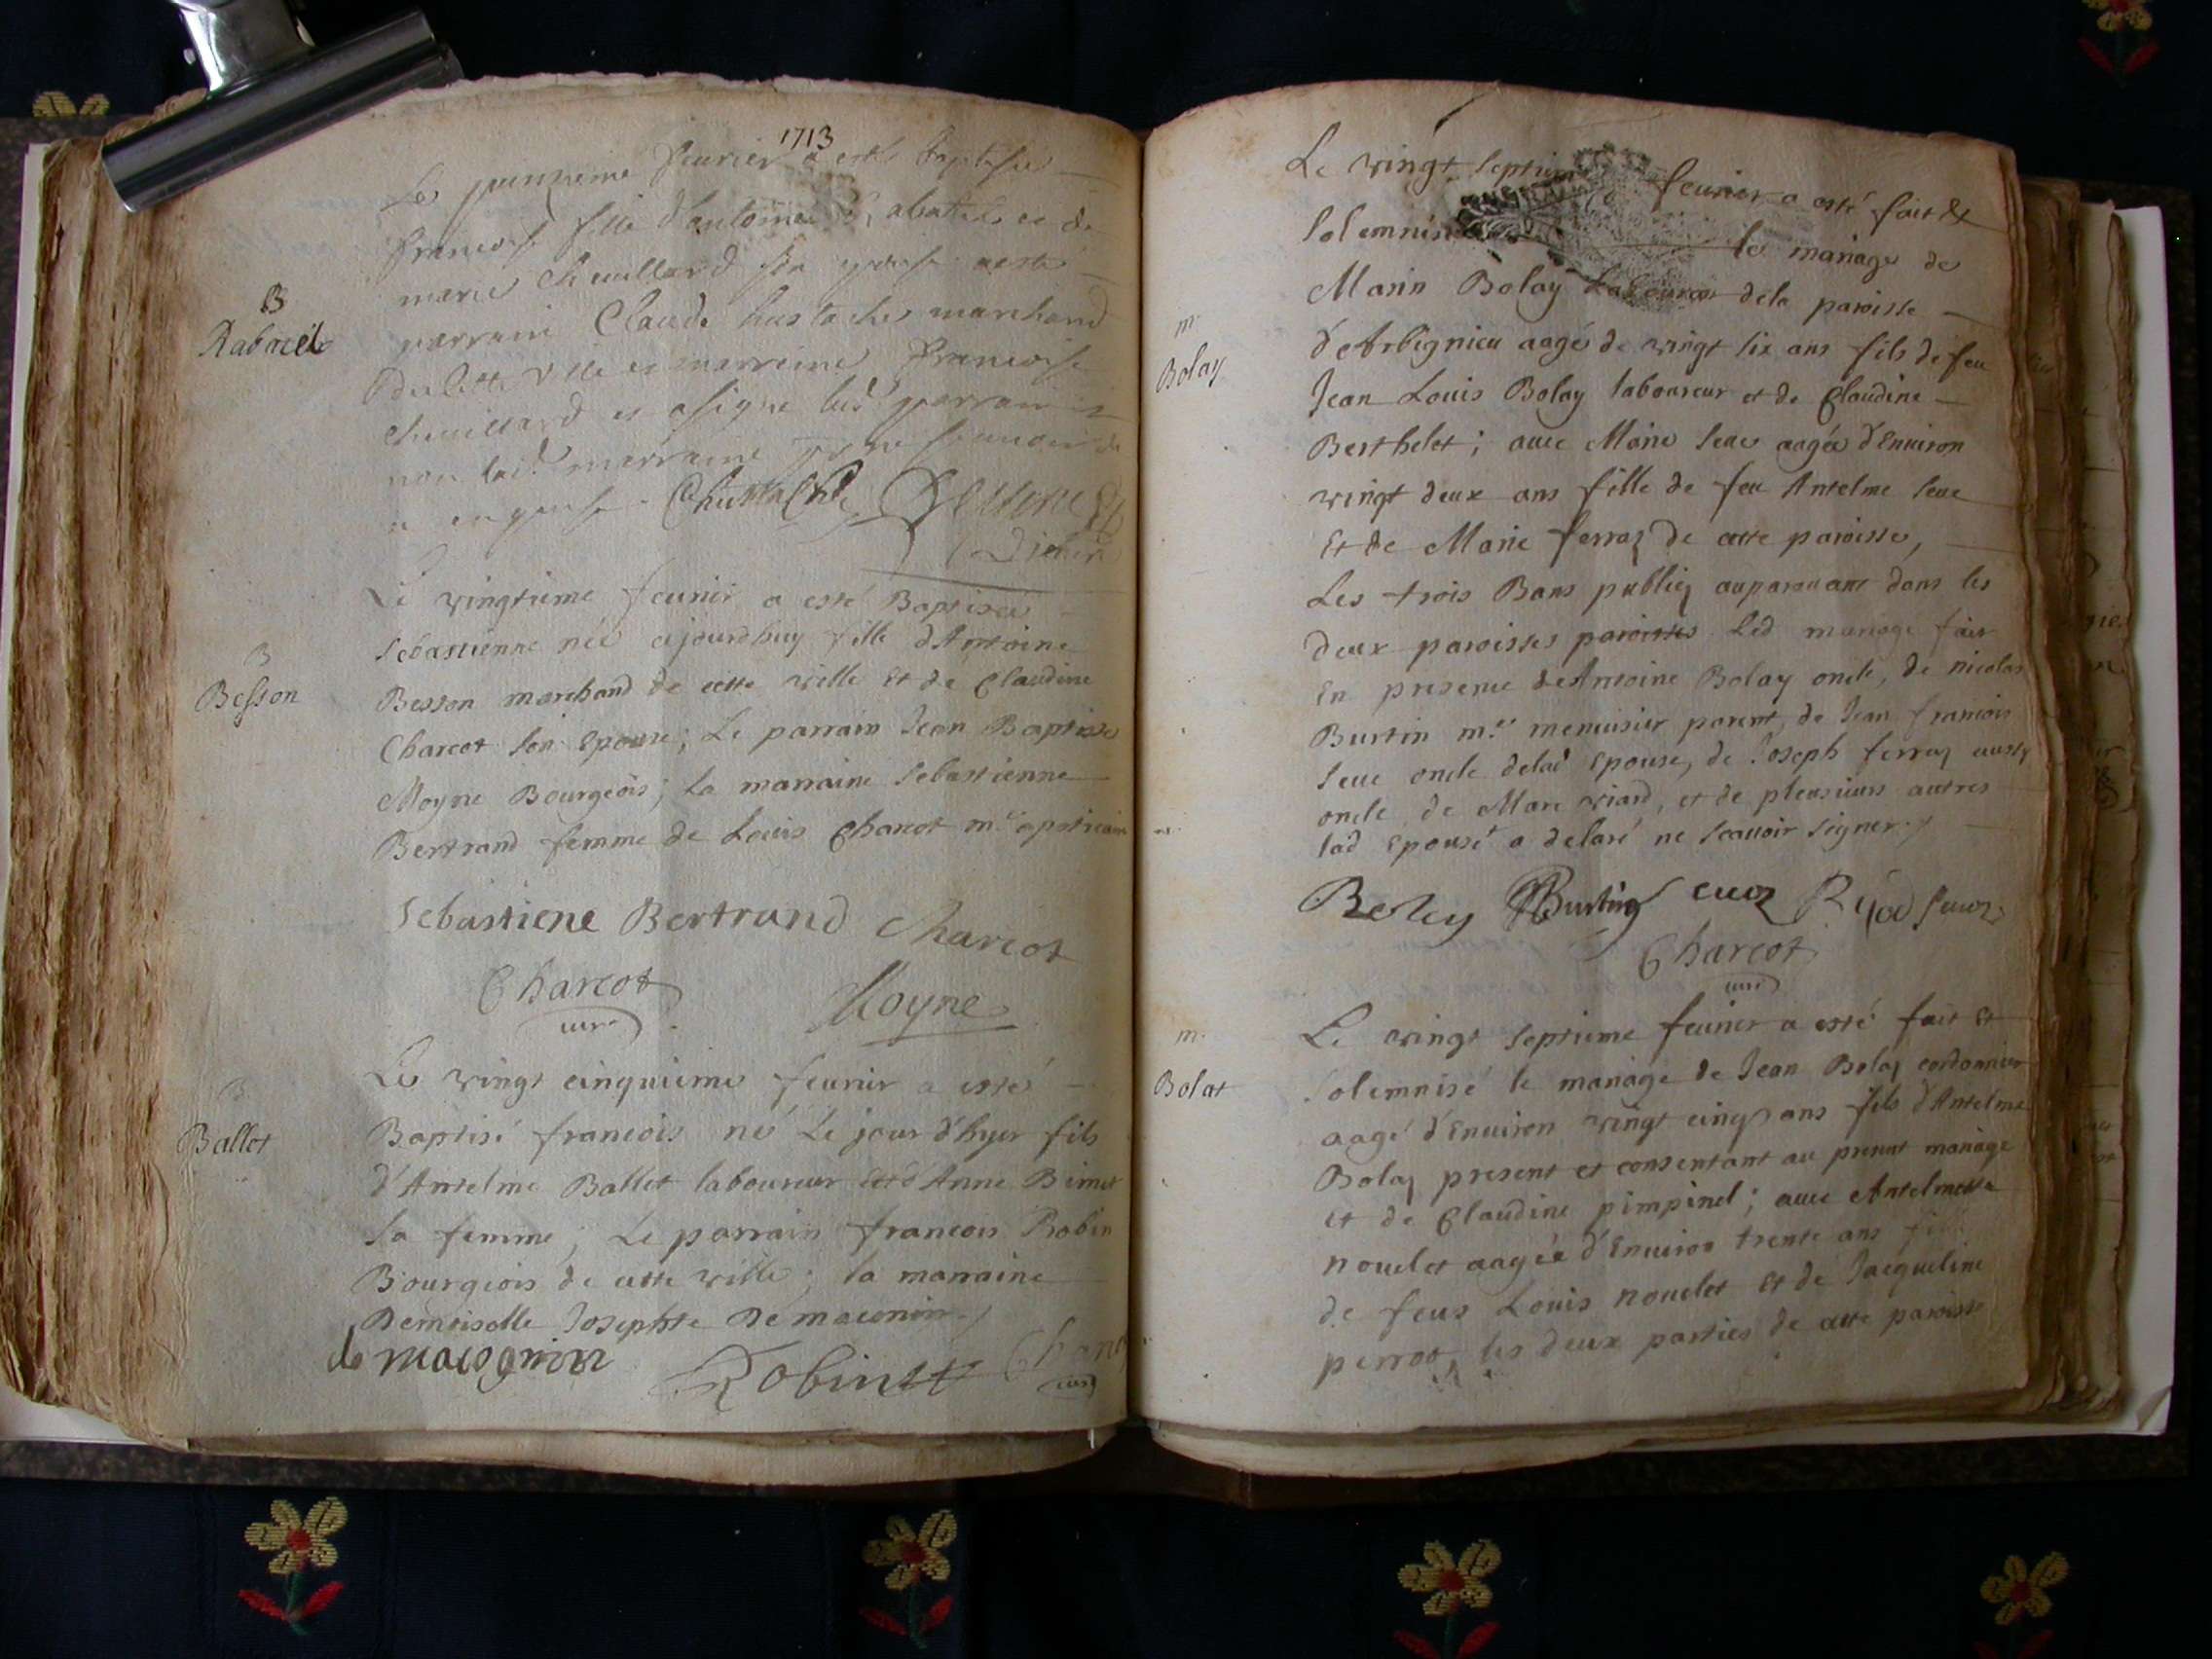 1713
Le quinzieme feurier a esté baptisée
francoise fille d'antoine Rabatel et de
marie Cheuillard son epouse a esté
parrain Claude Eustache marchand
de cette ville et marreine francoise
Cheuillard et a signe led parrain et
non lad marraine pour ne scauoir de
B
Rabatel
Le vingtieme feurier a esté Baptisée
Sebastienne née aujourdhuy fille d'Antoine
Besson marchand de cette ville Et de Claudine
Charcot son Epouse; Le parrain Jean Baptiste
Moyne Bourgeois; la marraine Sebastienne
Bertrand femme de Louis Charcot me apoticaire
B
Besson
Sebastiene Bertrand Charcot
Charcot Moyne
curé
Le vingt cinquieme feurier a esté
Baptisé francois né Le jour d'hyer fils
d'Antelme Ballet laboureur et d'Anne Bimet
sa femme; Le parrain francois Robin
Bourgeois de cette ville; la marraine
Demoiselle Josephte Demaconin
B
Ballet
de macognin Robin Charcot
curé
Le vingt septieme feurier a esté fait et
solemnisé le mariage de
Marin Bolay Laboureur de la paroisse
d'Arbignieu aagé de vingt six ans fils de feu
Jean Louis Bolay laboureur et de Claudine
Berthelet; auec Marie Seue aagée d'Enuiron
vingt deux ans fille de feu Antelme Seue
Et de Marie ferraz de cette paroisse,
Les trois Bans publiez auparauant dans les
deux paroisses paroisses Led mariage fait
En presence de Antoine Bolay oncle, de nicolas
Burtin me menuisier parent, de Jean francois
Seue oncle delad Epouse, de Joseph ferraz aussy
oncle, de Marc viard, et de pleusieurs autres
lad Epouse a delaré ne scauoir signer
m
Bolay
Boley Burtin Seuoz
Charcot
curé
Le vingt septieme feurier a esté fait Et
solemnisé le mariage de Jean Bolaz cordonnier
aagé d'Enuiron vingt cinq ans fils d'Antelme
Bolaz present et consentant au present mariage
et de Claudine pimpinel; auec Antelmette
nouelet aagée d'Enuiron trente ans fille
de feus Louis nouelet Et de Jacqueline
perrot, les deux parties de cette paroisse
m
Bolat